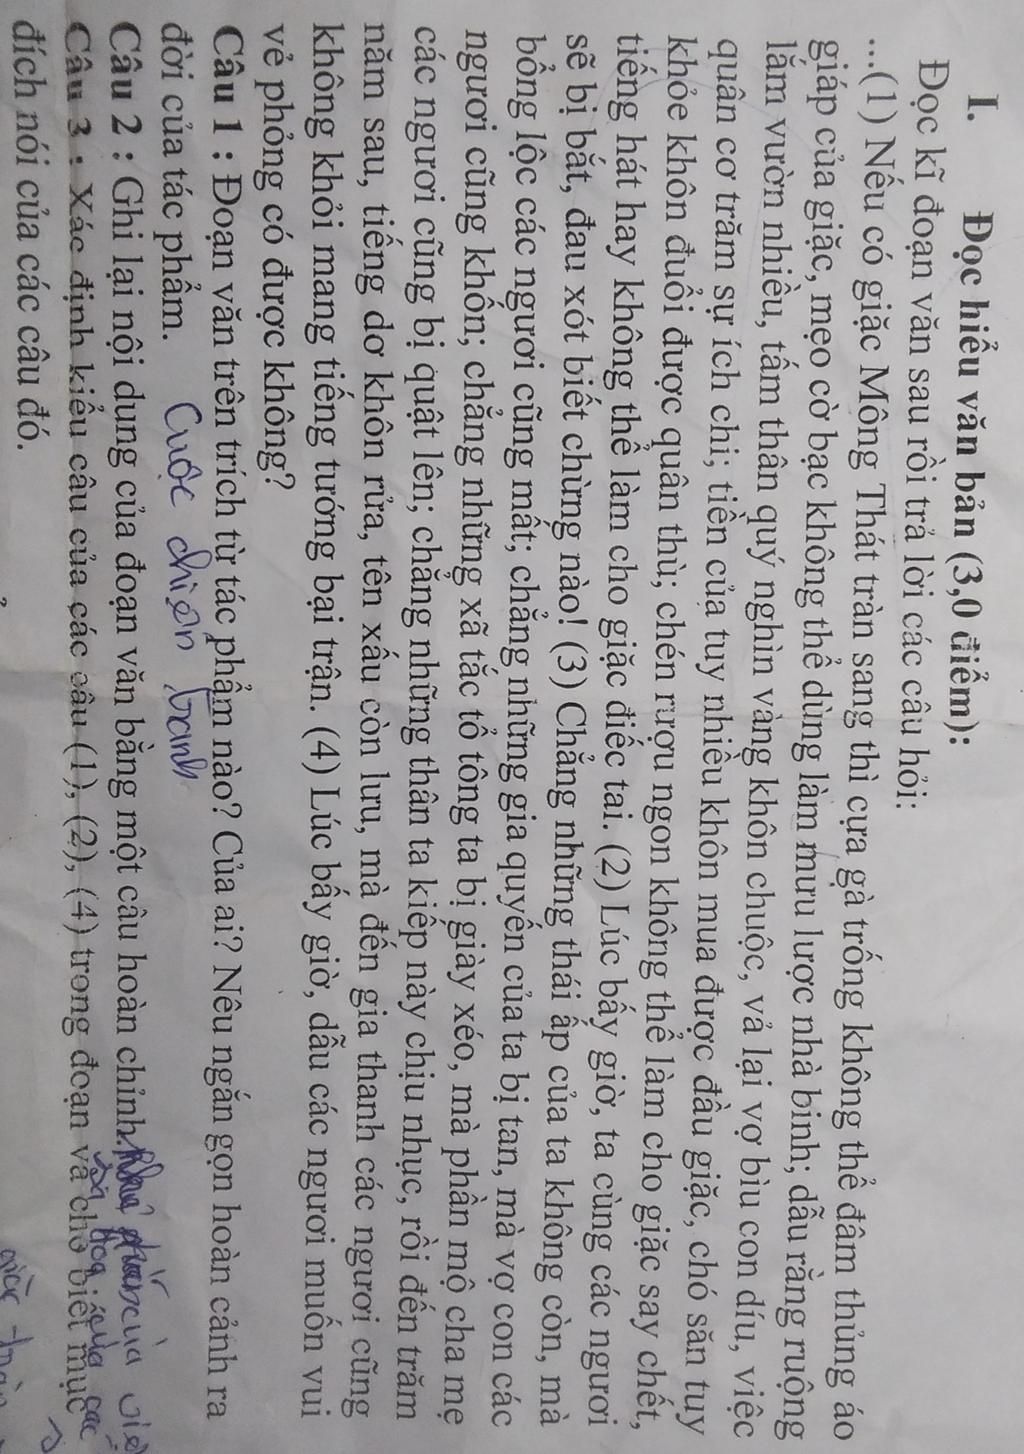 I. Đọc hiểu văn bản (3,0 điểm):
Đọc kĩ đoạn văn sau rồi trả lời các câu hỏi:
...(1) Nếu có giặc Mông Thát tràn sang thì cựa gà trống không thể đâm thủng áo
giáp của giặc, mẹo cờ bạc không thể dùng làm mưu lược nhà binh; dẫu rằng ruộng
lắm vườn nhiều, tấm thân quý nghìn vàng khôn chuộc, vả lại vợ bìu con díu, việc
quân cơ trăm sự ích chi; tiền của tuy nhiều khôn mua được đầu giặc, chó săn tuy
khỏe khôn đuổi được quân thù; chén rượu ngon không thể làm cho giặc say chết,
tiếng hát hay không thể làm cho giặc điếc tai. (2) Lúc bấy giờ, ta cùng các ngươi
sẽ bị bắt, đau xót biết chừng nào! (3) Chẳng những thái ấp của ta không còn, mà
bổng lộc các ngươi cũng mất; chẳng những gia quyến của ta bị tan, mà vợ con các
ngươi cũng khốn; chẳng những xã tắc tổ tông ta bị giày xéo, mà phần mộ cha mẹ
các ngươi cũng bị quật lên; chẳng những thân ta kiếp này chịu nhục, rồi đến trăm
năm sau, tiếng dơ khôn rửa, tên xấu còn lưu, mà đến gia thanh các ngươi cũng
không khỏi mang tiếng tướng bại trận. (4) Lúc bấy giờ, dẫu các ngươi muốn vui
vẻ phỏng có được không?
Câu 1 : Đoạn văn trên trích từ tác phẩm nào? Của ai? Nêu ngắn gọn hoàn cảnh ra
đời của tác phẩm. Cuộc chiến tranh
Câu 2 : Ghi lại nội dung của đoạn văn bằng một câu hoàn chỉnh.
Câu 3 : Xác định kiểu câu của các câu (1), (2), (4) trong đoạn và cho biết mục
đích nói của các câu đó.